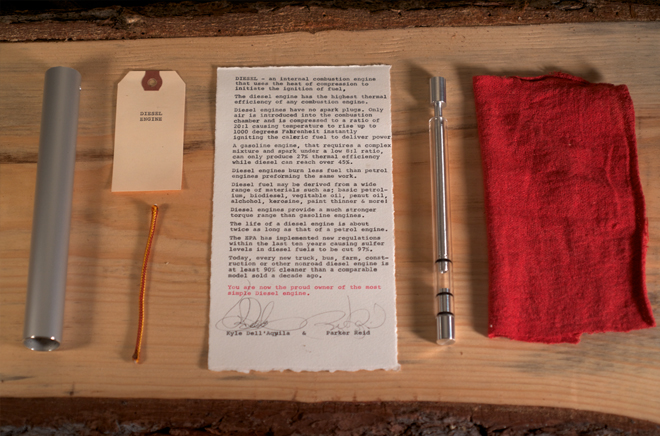 DIESEL
ENGINE
DIESEL - an internal combustion engine
that uses the heat of compression to
initiate the ignition of fuel.
The diesel engine has the highest thermal
efficiency of any combustion engine.
Diesel engines have no spark plugs. Only
air is introduced into the combustion
chamber and is compressed to a ratio of
20:1 causing temperature to rise up to
1000 degrees Fahrenheit instantly
igniting the caloric fuel to deliver power
A gasoline engine, that requires a complex
mixture and spark under a low 8:1 ratio,
can only produce 27% thermal efficiency
while diesel can reach over 45%.
Diesel engines burn less fuel than petrol
engines preforming the same work.
Diesel fuel may be derived from a wide
range of materials such as; basic petrol-
ium, biodiesel, vegitable oil, penut oil,
alchohol, kerosine, paint thinner & more!
Diesel engines provide a much stronger
torque range than gasoline engines.
The life of a diesel engine is about
twice as long as that of a petrol engine.
The EPA has implemented new regulations
within the last ten years causing sulfer
levels in diesel fuels to be cut 97%.
Today, every new truck, bus, farm, const-
ruction or other nonroad diesel engine is
at least 90% cleaner than a comparable
model sold a decade ago.
You are now the proud owner of the most
simple Diesel engine.
Kyle Dell'Aquila & Parker Heid